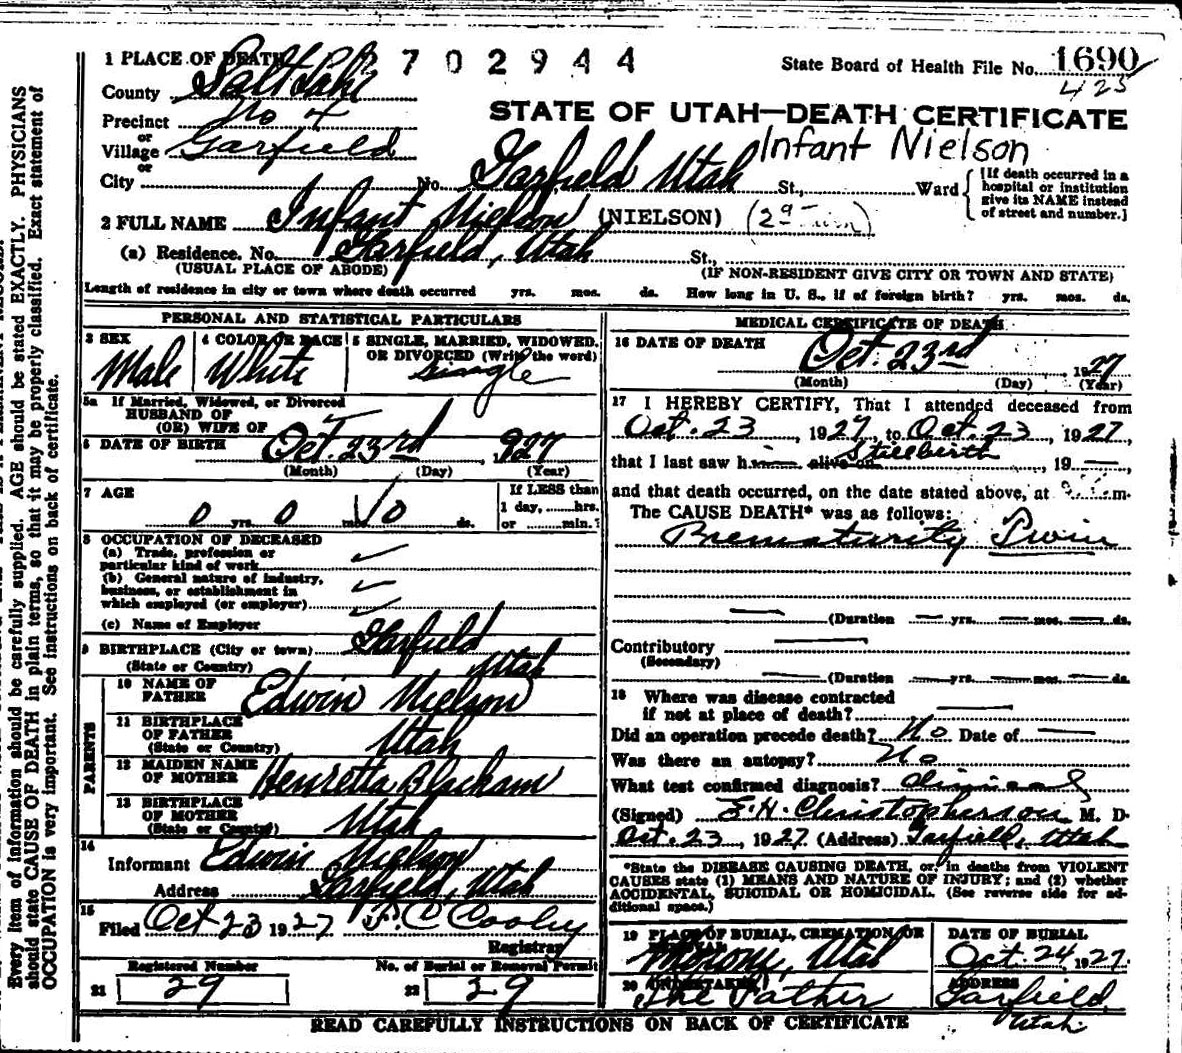 1 PLACE OF DEATH 2 7 0 2 9 4 4
State Board of Health File No. 1690
425
County Salt Lake
STATE OF UTAH—DEATH CERTIFICATE
Precinct No 4
or
Village Garfield
Infant Nielson
or
City No. Garfield Utah St., Ward
[If death occurred in a
hospital or institution
give its NAME instead
of street and number.]
2 FULL NAME Infant Nielson (NIELSON) (2nd Twin)
(a) Residence. No. Garfield, Utah St.,
(USUAL PLACE OF ABODE) (IF NON-RESIDENT GIVE CITY OR TOWN AND STATE)
Length of residence in city or town where death occurred yrs. mos. ds. How long in U. S., if of foreign birth? yrs. mos. ds.
PERSONAL AND STATISTICAL PARTICULARS
3 SEX 4 COLOR OR RACE 5 SINGLE, MARRIED, WIDOWED,
OR DIVORCED (Write the word)
Male White Single
5a If Married, Widowed, or Divorced
HUSBAND OF
(OR) WIFE OF
6 DATE OF BIRTH Oct. 23rd, 927
(Month) (Day) (Year)
7 AGE If LESS than
1 day, hrs.
0 yrs. 0 mos. 0 ds. or min.?
8 OCCUPATION OF DECEASED
(a) Trade, profession or
particular kind of work
(b) General nature of industry,
business, or establishment in
which employed (or employer)
(c) Name of Employer
9 BIRTHPLACE (City or town) Garfield
(State or Country) Utah
PARENTS
10 NAME OF
FATHER Edwin Nielson
11 BIRTHPLACE
OF FATHER
(State or Country) Utah
12 MAIDEN NAME
OF MOTHER Henretta Blackam
13 BIRTHPLACE
OF MOTHER
(State or Country) Utah
14
Informant Edwin Nielson
Address Garfield, Utah
15
Filed Oct 23 1927 P. C. Cooley
Registrar
Registered Number No. of Burial or Removal Permit
21 29 22 29
MEDICAL CERTIFICATE OF DEATH
16 DATE OF DEATH Oct. 23rd, 1927
(Month) (Day) (Year)
17 I HEREBY CERTIFY, That I attended deceased from
Oct. 23, 1927, to Oct. 23, 1927,
that I last saw h alive on Stillbirth, 19 —,
and that death occurred, on the date stated above, at m.
The CAUSE DEATH* was as follows:
Prematurity Twin
— (Duration — yrs. — mos. — ds.
Contributory —
(Secondary)
— (Duration — yrs. — mos. — ds.
18 Where was disease contracted
if not at place of death? —
Did an operation precede death? No Date of —
Was there an autopsy? No
What test confirmed diagnosis? Clinical
(Signed) E. H. Christopherson, M. D.
Oct. 23, 1927 (Address) Garfield, Utah
*State the DISEASE CAUSING DEATH, or, in deaths from VIOLENT
CAUSES state (1) MEANS AND NATURE OF INJURY; and (2) whether
ACCIDENTAL, SUICIDAL OR HOMICIDAL. (See reverse side for ad-
ditional space.)
19 PLACE OF BURIAL, CREMATION OR DATE OF BURIAL
Moroni, Utah Oct. 24 1927.
20 UNDERTAKER ADDRESS
The Father Garfield,
Utah.
READ CAREFULLY INSTRUCTIONS ON BACK OF CERTIFICATE
Every item of information should be carefully supplied. AGE should be stated EXACTLY. PHYSICIANS
should state CAUSE OF DEATH in plain terms, so that it may be properly classified. Exact statement of
OCCUPATION is very important. See instructions on back of certificate.